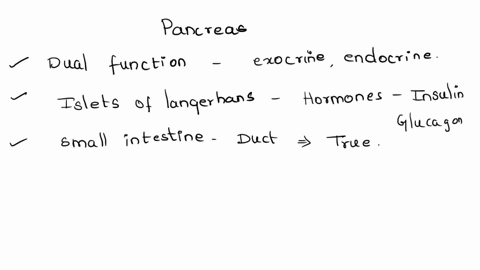 Pancreas
✓ Dual function - exocrine, endocrine.
✓ Islets of langerhans - Hormones - Insulin
Glucagon
✓ Small intestine - Duct ⇒ True.